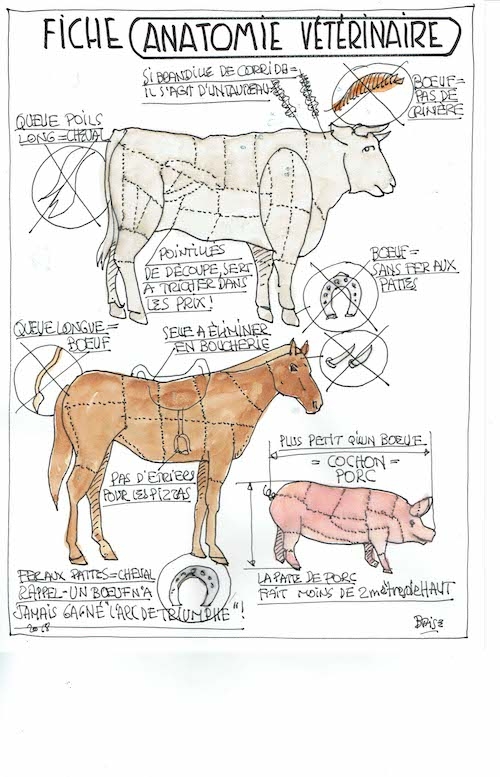 FICHE ANATOMIE VÉTÉRINAIRE
SI BRANDILLE DE CORRIDA =
IL S'AGIT D'UN TAUREAU
BŒUF =
PAS DE
CRINIÈRE
QUEUE POILS
LONG = CHEVAL
POINTILLÉS
DE DÉCOUPE, SERT
A TRICHER DANS
LES PRIX !
BŒUF =
SANS FER AUX
PATTES
QUEUE LONGUE =
BŒUF
SELLE A ÉLIMINER
EN BOUCHERIE
PAS D'ETRIERS
POUR LES PIZZAS
PLUS PETIT QU'UN BOEUF
= COCHON =
PORC
FER AUX PATTES = CHEVAL
RAPPEL - UN BOEUF N'A
JAMAIS GAGNÉ "L'ARC DE TRIOMPHE" !
LA PATE DE PORC
FAIT MOINS DE 2 mètres de HAUT